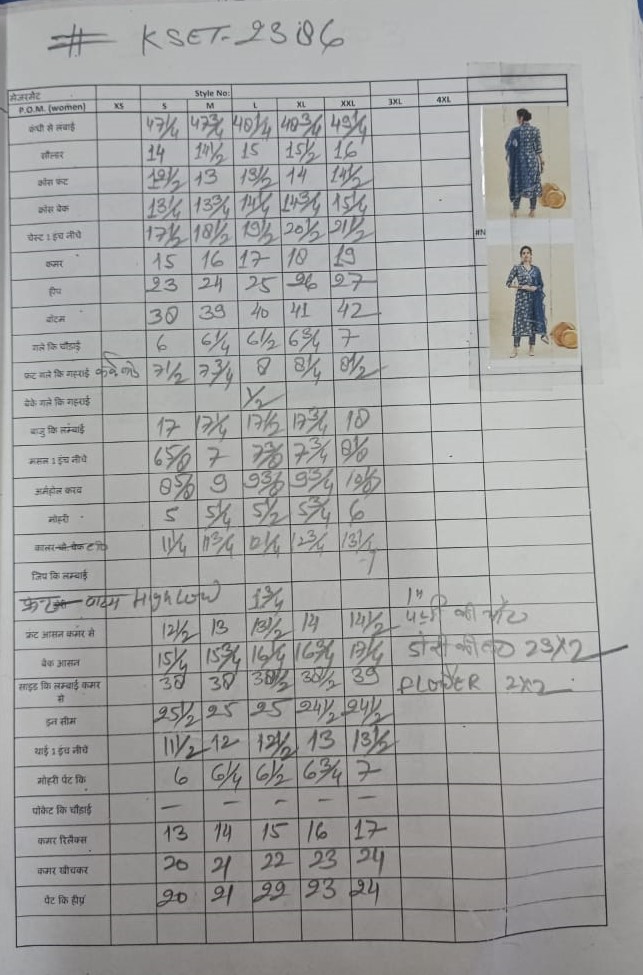 # KSET-2386
मेजरमेंट Style No:
P.O.M. (women) XS S M L XL XXL 3XL 4XL
कंधी से लंबाई 47 1/4 47 3/4 48 1/4 48 3/4 49 1/4
सोल्डर 14 14 1/2 15 15 1/2 16
क्रोस फ्रंट 12 1/2 13 13 1/2 14 14 1/2
क्रोस बेक 13 1/4 13 3/4 14 1/4 14 3/4 15 1/4
चेस्ट 1 इंच नीचे 17 1/2 18 1/2 19 1/2 20 1/2 21 1/2 #N
कमर 15 16 17 18 19
हीप 23 24 25 26 27
बोटम 38 39 40 41 42
गले कि चौड़ाई 6 6 1/4 6 1/2 6 3/4 7
फ्रंट गले कि गहराई 7 1/2 7 3/4 8 8 1/4 8 1/2
बेक गले कि गहराई 1/2
बाजु कि लम्बाई 17 17 1/4 17 1/2 17 3/4 18
मसल 1 इंच नीचे 6 5/8 7 7 3/8 7 3/4 8 1/8
अर्महोल करव 8 5/8 9 9 3/8 9 3/4 10 1/8
मोहरी 5 5 1/4 5 1/2 5 3/4 6
कालर 11 1/4 11 3/4 12 1/4 12 3/4 13 1/4
जिप कि लम्बाई
High Low 1 3/4 1"
फ्रंट आसन कमर से 12 1/2 13 13 1/2 14 14 1/2
बेक आसन 15 1/4 15 3/4 16 1/4 16 3/4 17 1/4 डोरी 23X2
साइड कि लम्बाई कमर से 38 38 38 1/2 38 1/2 39 FLOWER 2X2
इन सीम 25 1/2 25 25 24 1/2 24 1/2
थाई 1 इंच नीचे 11 1/2 12 12 1/2 13 13 1/2
मोहरी पेंट कि 6 6 1/4 6 1/2 6 3/4 7
पोकेट कि चौड़ाई — — — — —
कमर रिलेक्स 13 14 15 16 17
कमर खीचकर 20 21 22 23 24
पेंट कि हीप 20 21 22 23 24